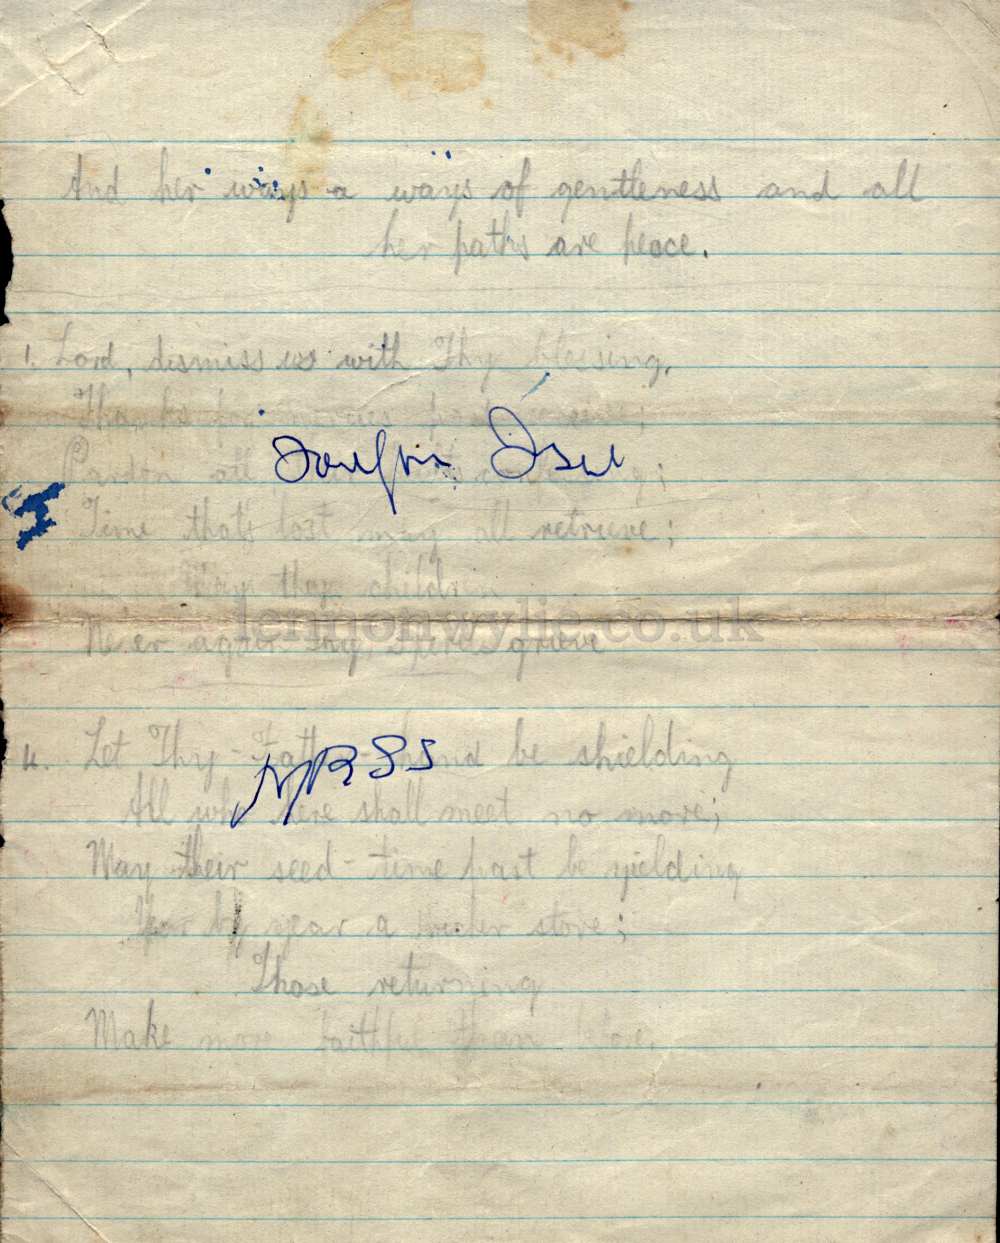 And her ways a ways of gentleness and all
her paths are peace.
1. Lord, dismiss us with Thy blessing,
Thanks for mercies past receive;
Pardon all
Time that's lost may all retrieve;
May thy children
Ne'er again thy Spirit grieve
lennonwylie.co.uk
4. Let Thy Father-hand be shielding
All who here shall meet no more;
May their seed-time past be yielding
Year by year a richer store;
Those returning
Make more faithful than before.